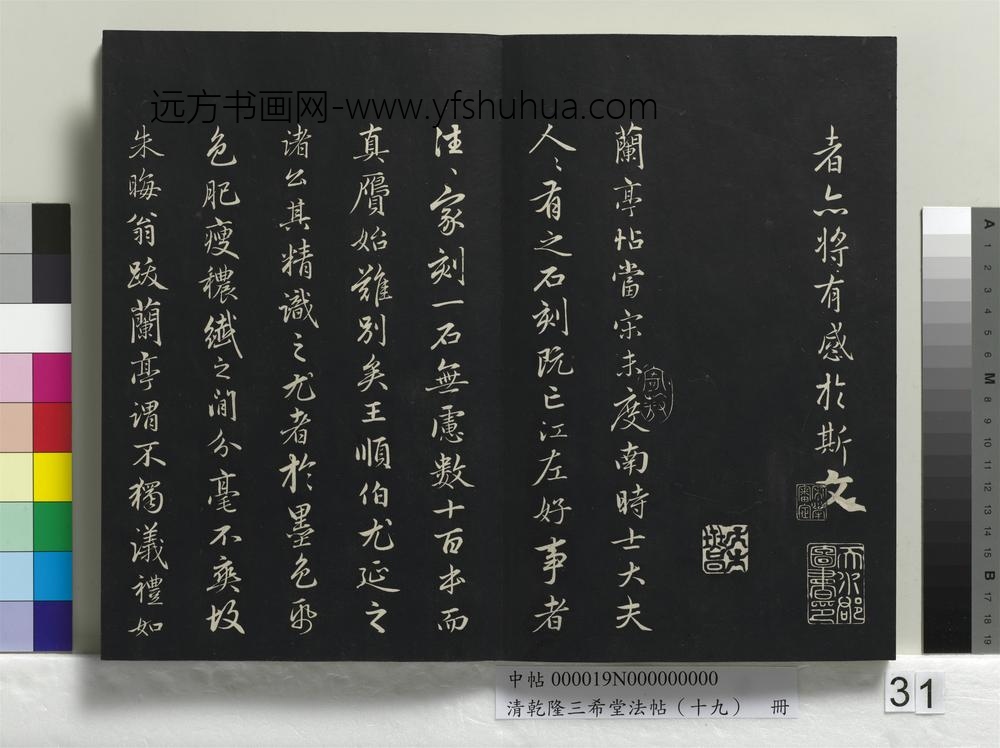 远方书画网-www.yfshuhua.com
者亦將有感於斯文
蘭亭帖當宋未度南時士大夫
人人有之石刻既亡江左好事者
往往家刻一石無慮數十百本而
真贗始難別矣王順伯尤延之
諸公其精識之尤者於墨色紙
色肥瘦穠纖之間分毫不爽故
朱晦翁跋蘭亭謂不獨議禮如
天水郡
圖書印
中帖 000019N000000000
清乾隆三希堂法帖（十九） 冊
31
A 1 2 3 4 5 6 M 8 9 10 11 12 13 14 15 B 17 18 19